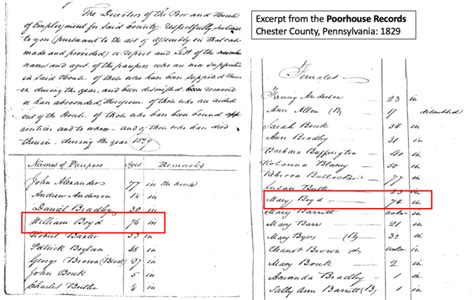 The Directors of the Poor and House
of Employment for said County Respectfully
to you (pursuant to the act of Assembly in that case
made and provided) a Report and List of the number
names and ages of the paupers who are now supported
in Said House of those who have been supported
during the year, and been dismissed, removed
or have absconded, those of them who are
out of the House, of those who have been bound
and to whom and of those who have died
during the year 1829
Names of Paupers Ages Remarks
John Alexander 77 in
Andrew Anderson 18 in
Daniel Bradley 30 in
William Boyd 76 in
Robert Baxter 33 in
Patrick Boylan 48 in
George Brown (Black) 37 in
John Bonk 5 in
Charles Butler 4 in
Excerpt from the Poorhouse Records
Chester County, Pennsylvania: 1829
Females
Fanny Anderson 23 in
Ann Allon (B) 97 in
Sarah Bonk 34 in
Ann Bradly 31 in
Barbara Buffington 40 in
50 in
Rebecca Bullock 77 in
Susan Butler 23 in
Mary Boyd 74 in
Mary Barrett in
Mary Barr 21 in
Mary Byers (B) 33 in
Eleanor Brown in
Mary Bonk 8 in
Amanda Bradley 1 in
Sally Ann Barrett (B) 1 in